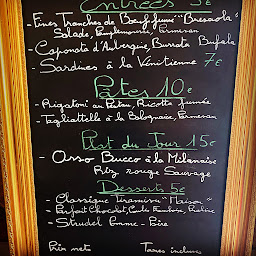 Entrées 9€
- Fines Tranches de Bœuf fumé "Bresaola"
Salade, Pamplemousse, Parmesan
- Caponata d'Aubergine, Burrata Bufala
- Sardines à la Vénitienne 7€
Pâtes 10€
- Rigatoni au Pesto, Ricotta fumée
- Tagliattelle à la Bolognaise, Parmesan
Plat du Jour 15€
- Osso Bucco à la Milannaise
Riz rouge Sauvage
Desserts 5€
- Classique Tiramisu "Maison"
- Parfait Chocolat, Coulis Framboise, Praline
- Strudel Pomme - Poire
Prix nets Taxes inclues